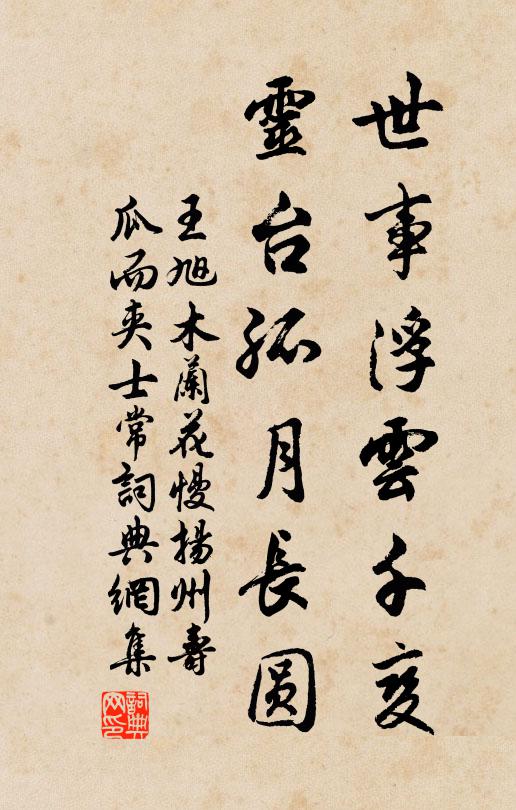 世事浮雲千変
靈台孤月長圓
王旭木蘭花慢揚州壽
瓜而夾士常詞典網集
詞典网印